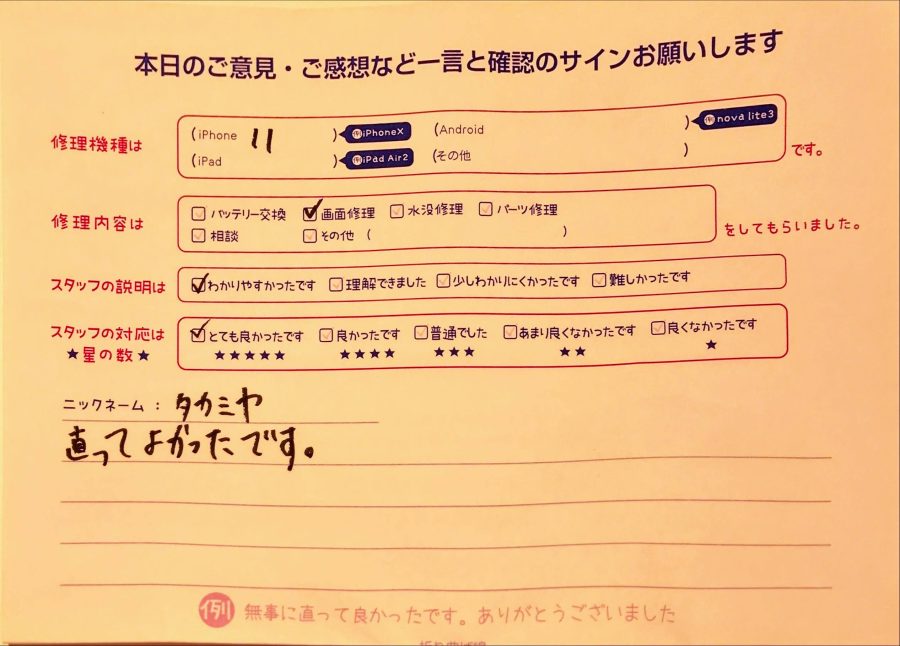 本日のご意見・ご感想など一言と確認のサインお願いします
修理機種は
(iPhone 11 )例iPhoneX (Android )例nova lite3
(iPad )例iPad Air2 (その他 )
です。
修理内容は
バッテリー交換 画面修理 水没修理 パーツ修理
相談 その他 ( )
をしてもらいました。
スタッフの説明は
わかりやすかったです 理解できました 少しわかりにくかったです 難しかったです
スタッフの対応は
★星の数★
とても良かったです 良かったです 普通でした あまり良くなかったです 良くなかったです
★★★★★ ★★★★ ★★★ ★★ ★
ニックネーム : タカミヤ
直ってよかったです。
例 無事に直って良かったです。ありがとうございました